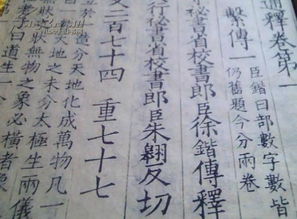 通釋卷第一
繫傳一
臣鍇曰部數字數皆
仍舊題今分兩卷
秘書省校書郎臣徐鍇傳釋
行秘書省校書郎臣朱翱反切
文二百七十四 重七十七
造分天地化成萬物凡一
天地之未分太極生兩儀
狀無物之象必橫者象
老子曰道生一